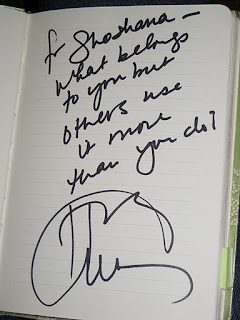 for Shoshana –
What belongs
to you but
others use
it more
than you do?